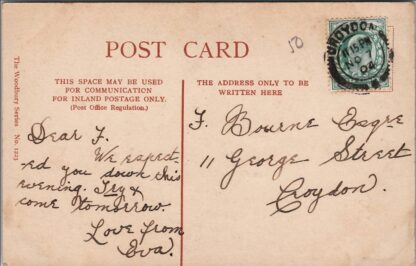 POST CARD
10
The Woodbury Series No. 1213
THIS SPACE MAY BE USED
FOR COMMUNICATION
FOR INLAND POSTAGE ONLY.
(Post Office Regulation.)
THE ADDRESS ONLY TO BE
WRITTEN HERE
CROYDON
NO
04
Dear F.
We expect-
ed you down this
evening. Try &
come tomorrow.
Love from
Eva.
F. Bourne Esqre
11 George Street
Croydon.